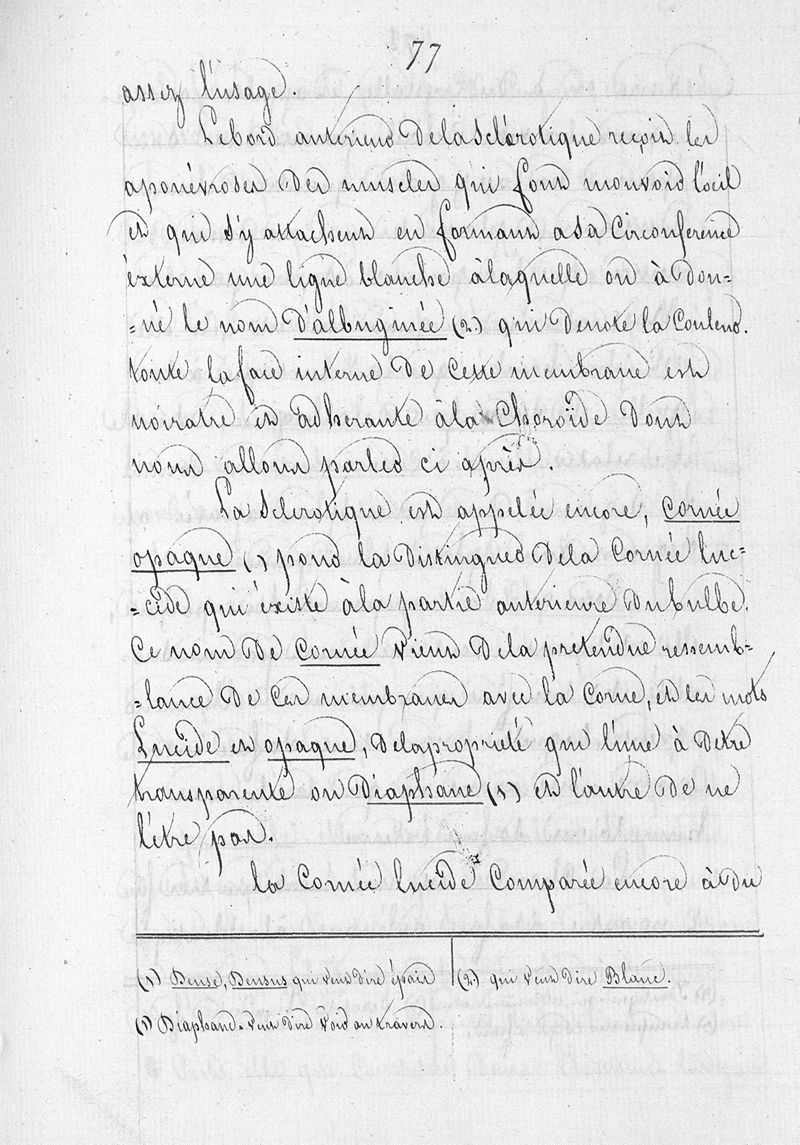 77
assez l'usage.
Le bord anterieur de la sclérotique reçoit les
aponévroses des muscles qui font mouvoir l'oeil
et qui s'y attachent en formant a sa Circonference
éxterne une ligne blanche à laquelle on à don=
=né le nom D'albuginée (2) qui denote la Couleur.
toute la face interne de cette membrane est
noiratre et adherante à la Choroïde dont
nous allons parler ci après.
La sclerotique est appelée encore, cornée
opaque (1) pour la distinguer de la Cornée luc=
=cide qui éxiste à la partie anterieure du bulbe.
Ce nom de cornée vient de la pretendue ressemb=
=lance de ces membranes avec la Corne, et les mots
Lucide et opaque, de la propriété que l'une à d'etre
transparente ou Diaphane (1) et l'autre de ne
l'être pas.
la Cornée lucide Comparée encore à du
(1) Dense, Densus qui veut dire épais
(2) qui veut dire Blanc.
(1) Diaphane veut dire voir au travers.